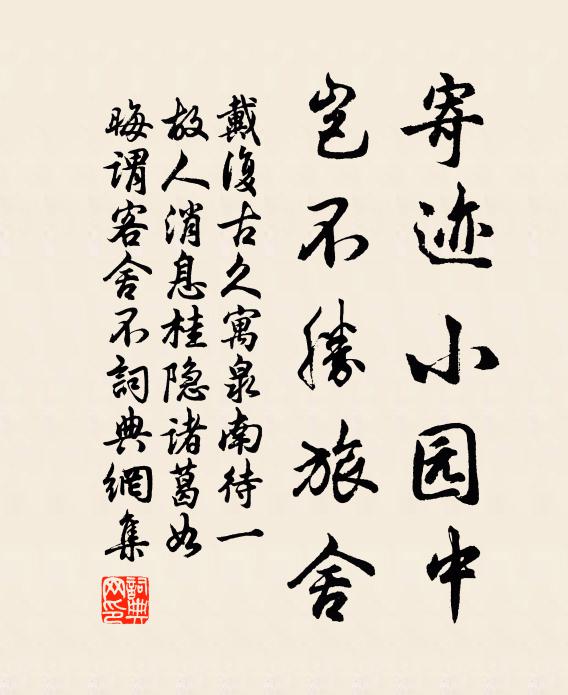 寄迹小园中
岂不胜旅舍
戴復古久寓泉南待一
故人消息桂隐诸葛如
晦谓客舍不詞典網集
詞典網印